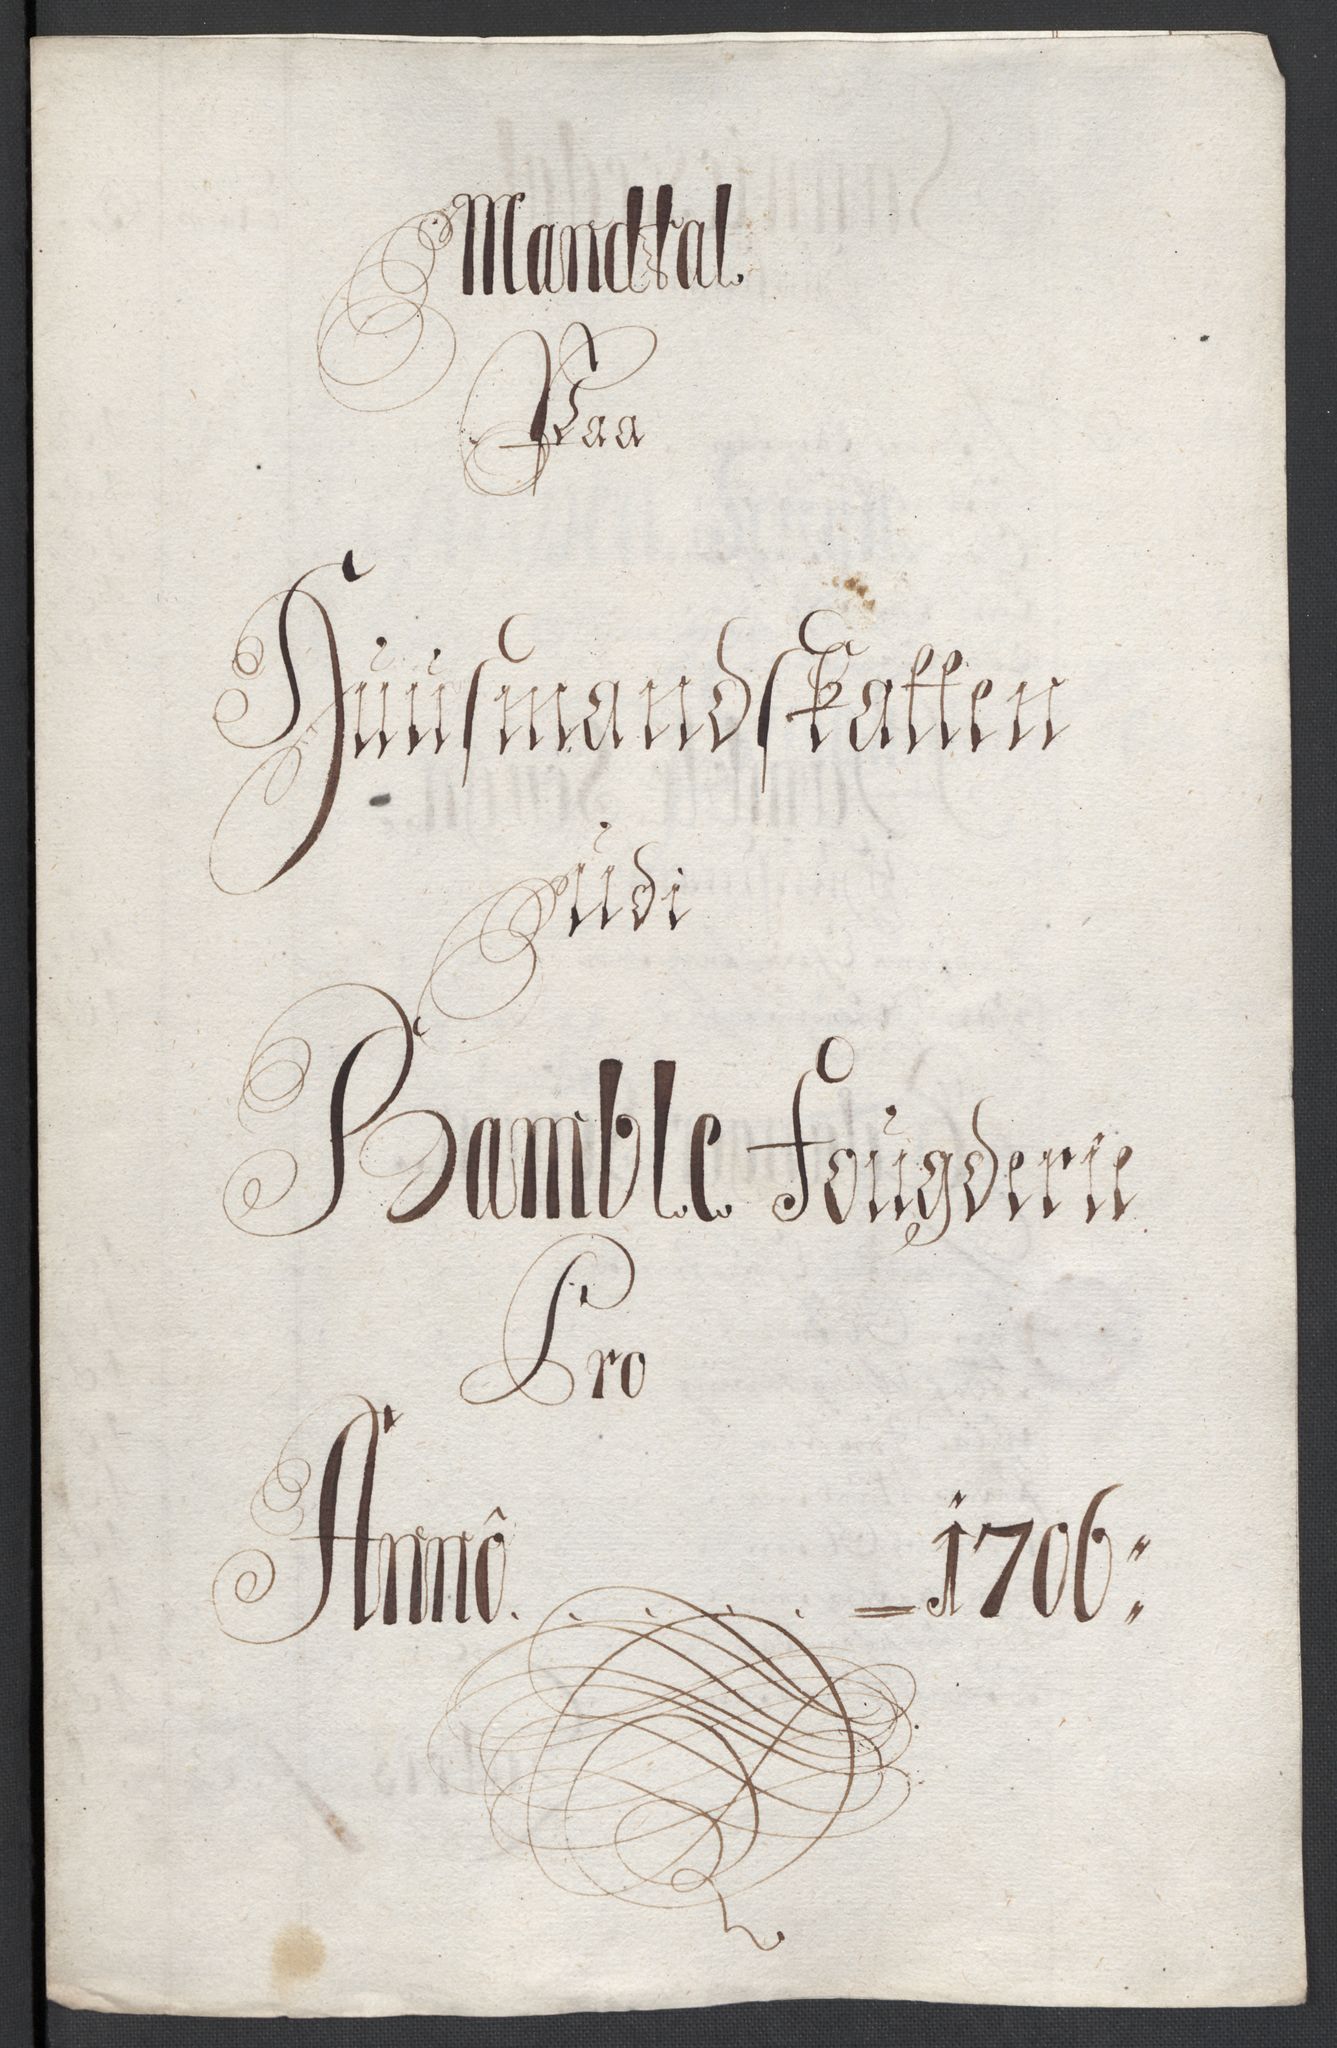 Mandtal
Paa
Huusmandskatten
udi
Bamble Fougderie
Pro
Annô. . . . . = 1706: